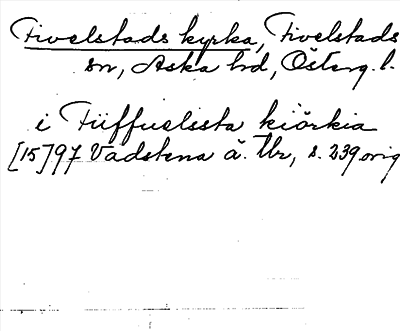 Fivelstads kyrka, Fivelstads
sn, Aska hd, Österg. l.
i Fiiffuelssta kiörkia
[15]97 Vadstena ä. Tbr, s. 239 orig